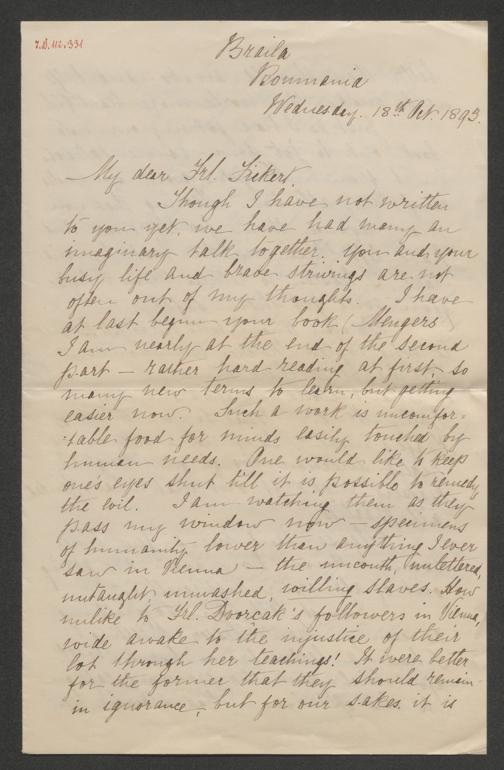 I.N. 112.331
Braila
Roumania
Wednesday. 18th Oct. 1893.
My dear Frl. Fickert.
Though I have not written
to you yet, we have had many an
imaginary talk together. You and your
busy life and brave strivings are not
often out of my thoughts. I have
at last begun your book (Mengers)
I am nearly at the end of the second
part — rather hard reading at first, so
many new terms to learn, but getting
easier now. Such a work is uncomfor-
-table food for minds easily touched by
human needs. One would like to keep
one's eyes shut till it is possible to remedy
the evil. I am watching them as they
pass my window now — specimens
of humanity lower than anything I ever
saw in Vienna — the uncouth, unlettered,
untaught, unwashed, willing slaves. How
unlike to Frl. Dvorcak's followers in Vienna,
wide awake to the injustice of their
lot through her teachings! It were better
for the former that they should remain
in ignorance, but for our sakes it is